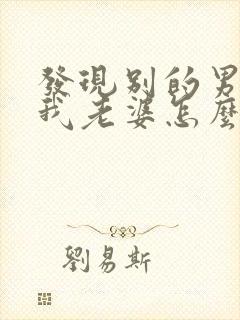 發現別的男
我老婆怎麼
劉易斯